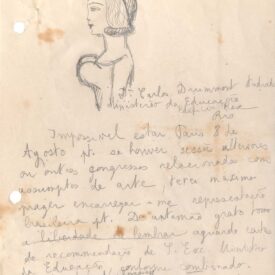 Dr. Carlos Drummond Andrade
Ministerio da Educação
Edificio Rex
Rio
Impossivel estar Paris 8 de
Agosto pt. se houver sessões ulteriores
ou outros congressos relacionados com
assumptos de arte, terei maximo
prazer encarregar-me representação
brasileira pt. De antemão grato tomo
a liberdade lembrar aguardo carta
de recommendação de S. Exc. Ministro
da Educação, conforme combinado.